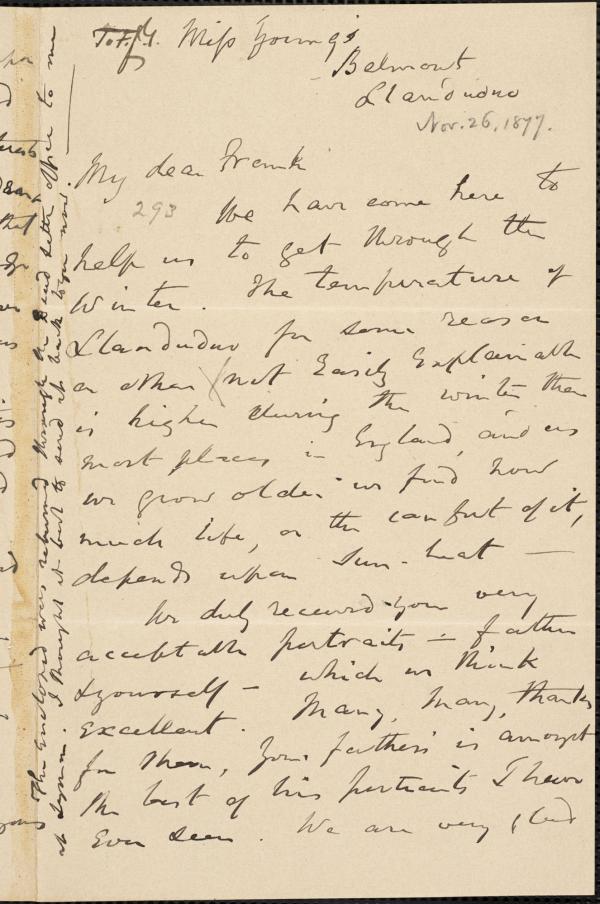 To F.J.G. Miss Young's
Belmont
Llandudno
Nov. 26, 1877.
My dear Frank
293 We have come here to
help us to get through the
Winter. The temperature of
Llandudno for some reason
or other (not Easily Explainable
is higher during the winter than
most places in England, and as
we grow older we find how
much life, or the comfort of it,
depends upon Sun-heat —
We duly received your very
acceptable portraits — father
& yourself — which we think
Excellent. Many, Many, thanks
for them, your father's is amongst
the best of his portraits I have
Ever seen. We are very glad
The enclosed was returned through the Dead letter office to me
at Lymm. I thought it best to send it back to you now.